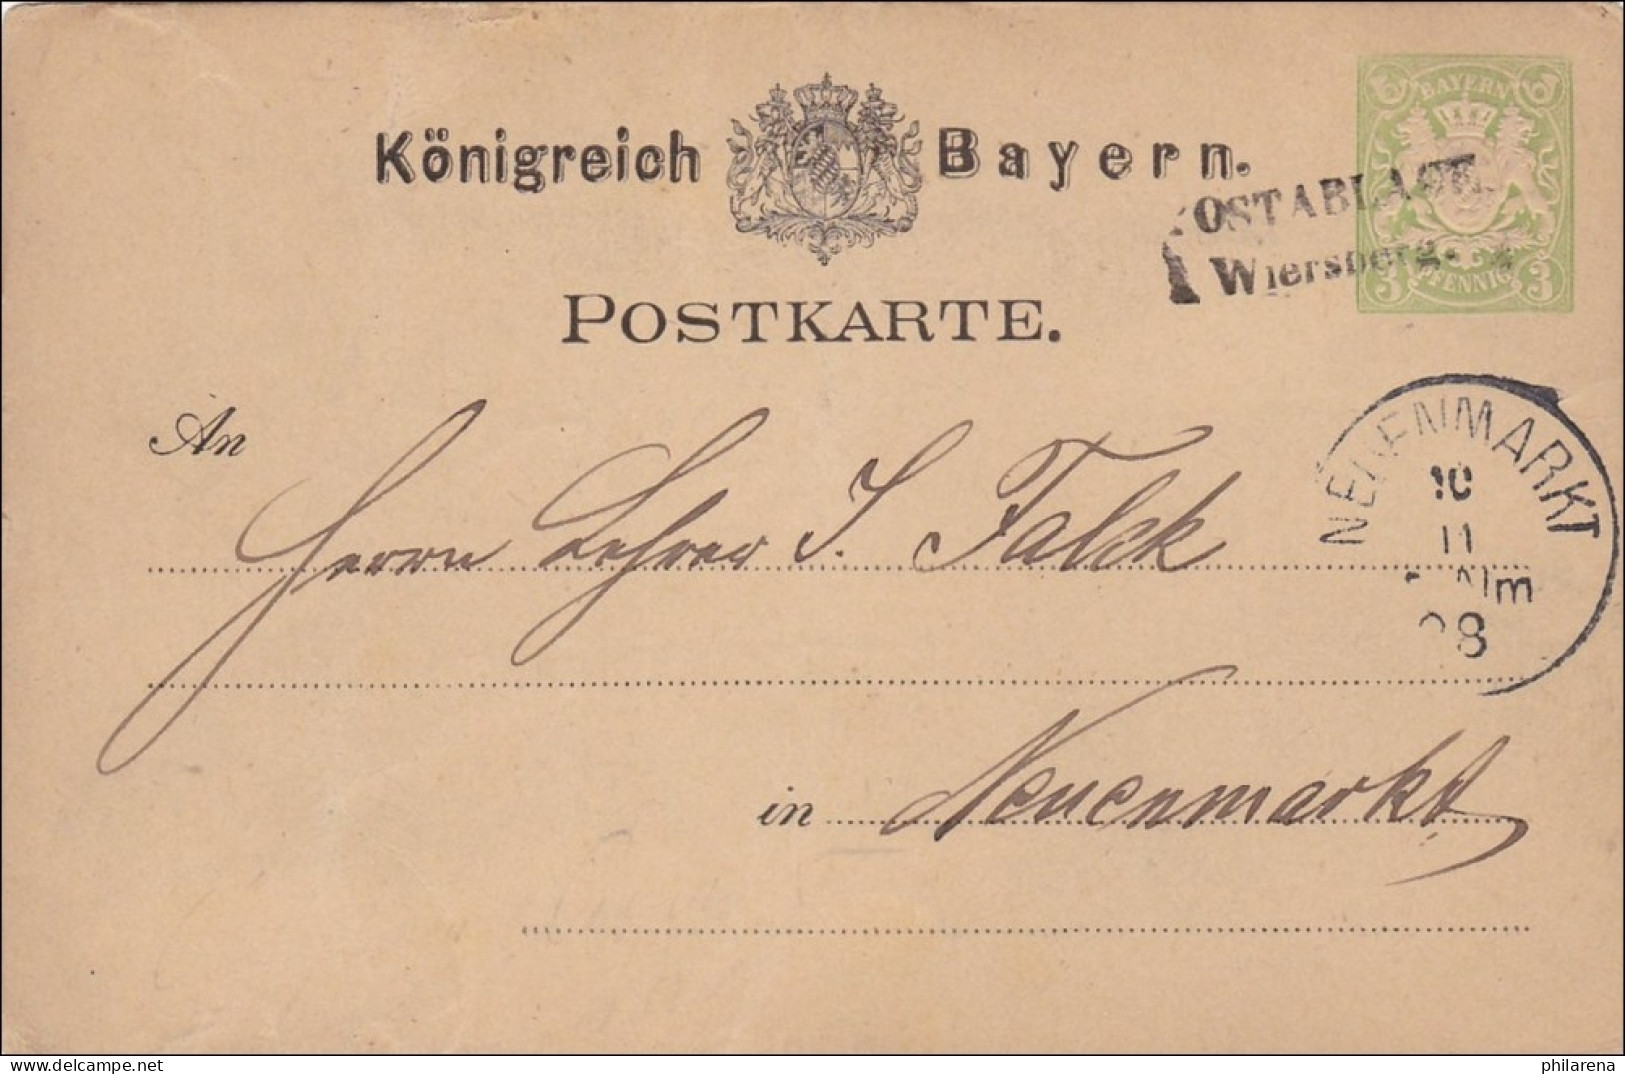 Königreich Bayern.
BAYERN
3 PFENNIG 3
POSTABLAGE
Wiersberg.
POSTKARTE.
An
Herrn Lehrer J. Falck
NEUENMARKT
10
11
Nm
in Neuenmarkt
delcampe.net
philarena